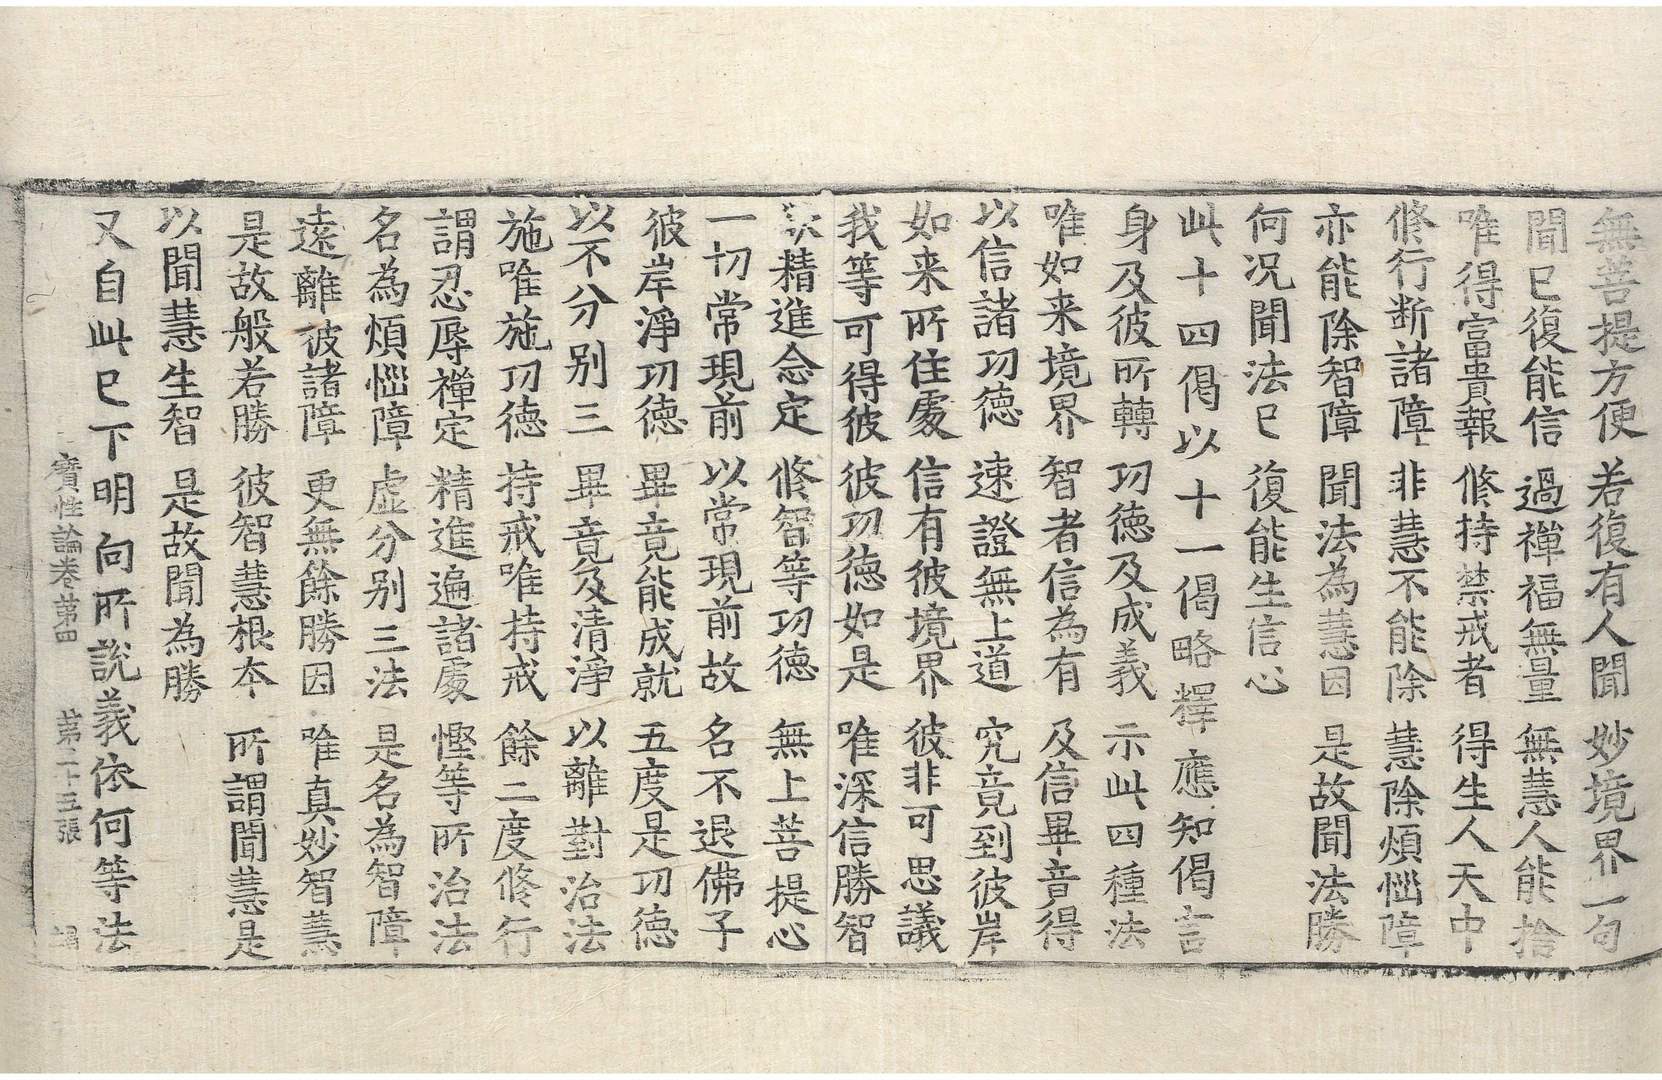 無菩提方便　若復有人聞　妙境界一句
聞已復能信　過禪福無量　無慧人能捨
唯得富貴報　修持禁戒者　得生人天中
修行断諸障　非慧不能除　慧除煩惱障
亦能除智障　聞法為慧因　是故聞法勝
何况聞法已　復能生信心
此十四偈以十一偈略釋應知偈言
身及彼所轉　功德及成義　示此四種法
唯如来境界　智者信為有　及信畢竟得
以信諸功德　速證無上道　究竟到彼岸
如来所住處　信有彼境界　彼非可思議
我等可得彼　彼功德如是　唯深信勝智
欲精進念定　修智等功德　無上菩提心
一切常現前　以常現前故　名不退佛子
彼岸淨功德　畢竟能成就　五度是功德
以不分别三　畢竟及清淨　以離對治法
施唯施功德　持戒唯持戒　餘二度修行
謂忍辱禪定　精進遍諸處　慳等所治法
名為煩惱障　虚分别三法　是名為智障
遠離彼諸障　更無餘勝因　唯真妙智慧
是故般若勝　彼智慧根本　所謂聞慧是
以聞慧生智　是故聞為勝
又自此已下明向所說義依何等法
寶性論卷第四　第二十五張